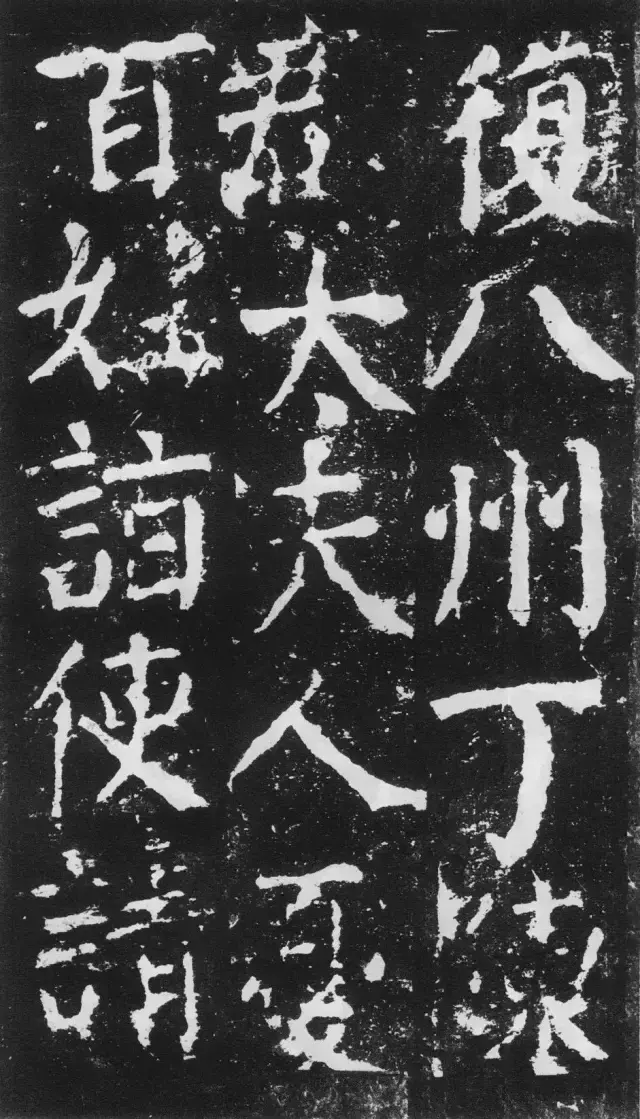 復八州丁陳
郡太夫人憂
百姓詣使請